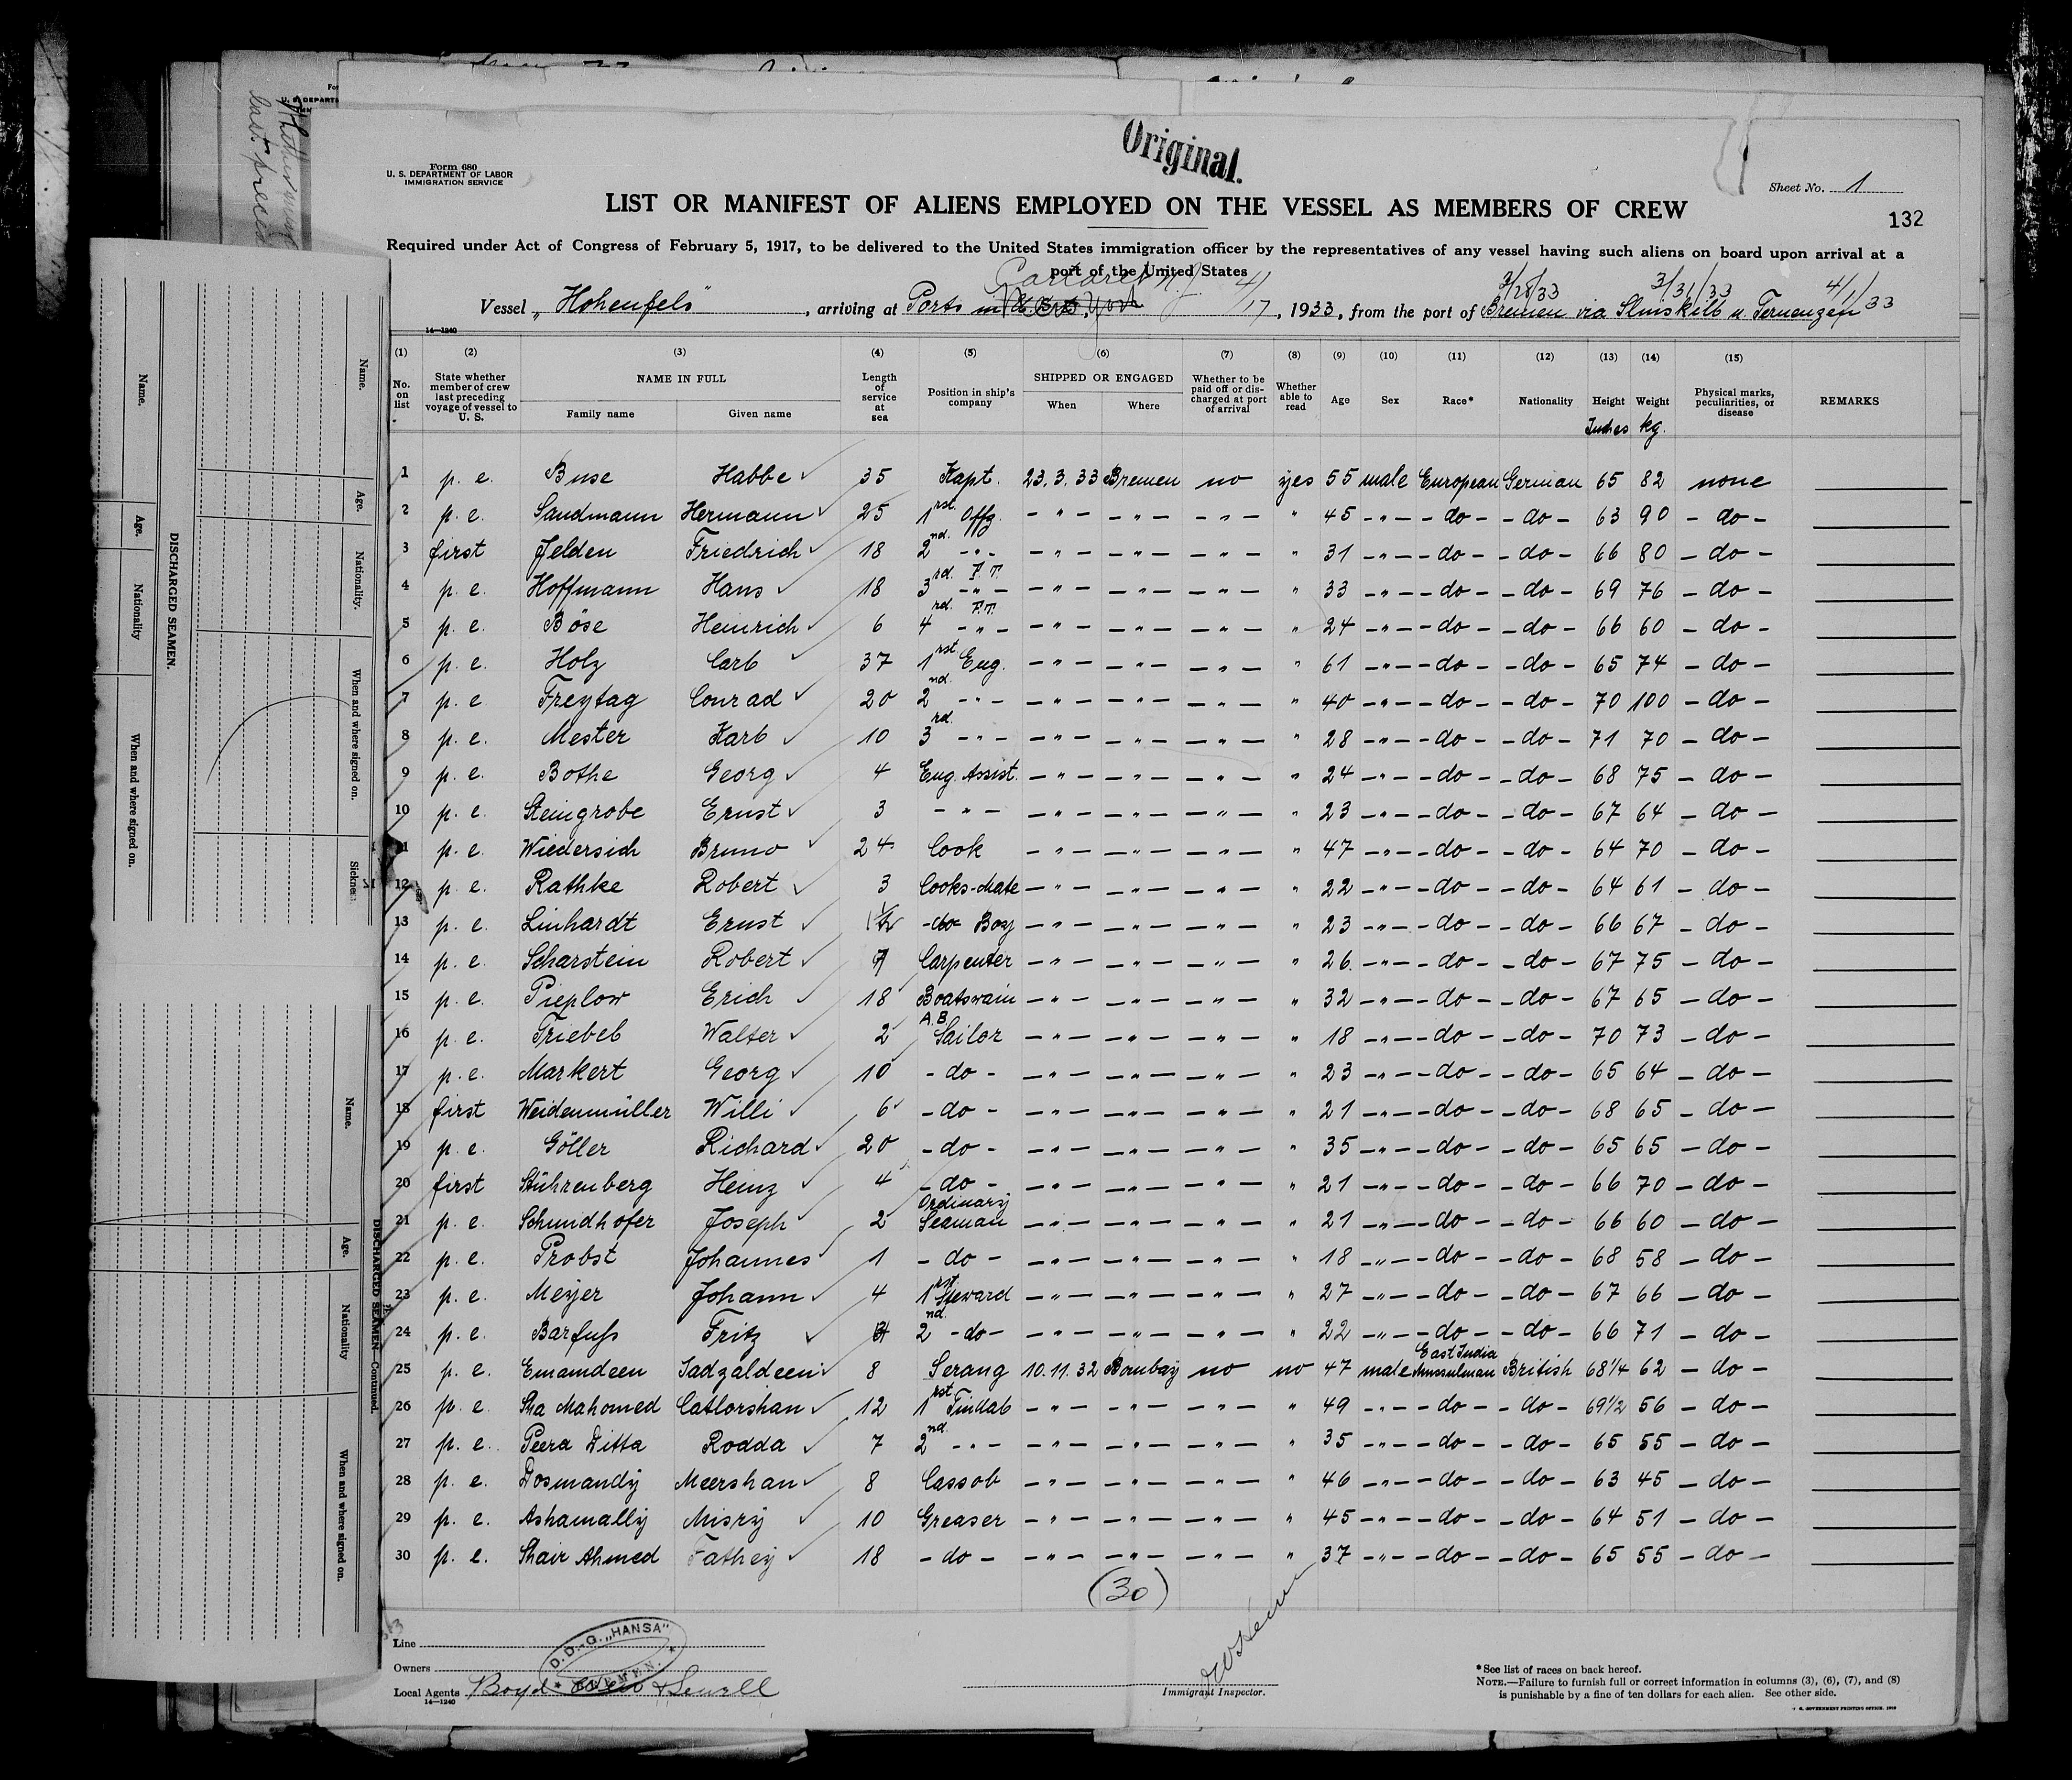 Original.
Form 680
U. S. DEPARTMENT OF LABOR
IMMIGRATION SERVICE
Sheet No. 1
LIST OR MANIFEST OF ALIENS EMPLOYED ON THE VESSEL AS MEMBERS OF CREW
132
Required under Act of Congress of February 5, 1917, to be delivered to the United States immigration officer by the representatives of any vessel having such aliens on board upon arrival at a
port of the United States
Carteret N.J. 4/ 3/28/33 3/31/33 4/1/33
Vessel „Hohenfels", arriving at Ports in 17, 1933, from the port of Bremen via u. Terneuzen
14—1240
(1) (2) (3) (4) (5) (6) (7) (8) (9) (10) (11) (12) (13) (14) (15)
No. on list State whether member of crew last preceding voyage of vessel to U. S. NAME IN FULL Family name Given name Length of service at sea Position in ship's company SHIPPED OR ENGAGED When Where Whether to be paid off or discharged at port of arrival Whether able to read Age Sex Race* Nationality Height Weight Physical marks, peculiarities, or disease REMARKS
Inches kg.
1 p. e. Buse Habbe 35 Kapt. 23.3.33 Bremen no yes 55 male European German 65 82 none
2 p. e. Sandmann Hermann 25 1rst. Offz. - " - - " - - " - " 45 - " - - do - - do - 63 90 - do -
3 first Jelden Friedrich 18 2nd. - " - - " - - " - - " - " 31 - " - - do - - do - 66 80 - do -
4 p. e. Hoffmann Hans 18 3rd. F.T. - " - - " - - " - - " - " 33 - " - - do - - do - 69 76 - do -
5 p. e. Böse Heinrich 6 4rd. F.T. - " - - " - - " - - " - " 24 - " - - do - - do - 66 60 - do -
6 p. e. Holz Carl 37 1rst Eng. - " - - " - - " - " 61 - " - - do - - do - 65 74 - do -
7 p. e Freytag Conrad 20 2nd. - " - - " - - " - - " - " 40 - " - - do - - do - 70 100 - do -
8 p. e. Mester Karl 10 3rd. - " - - " - - " - - " - " 28 - " - - do - - do - 71 70 - do -
9 p. e. Bothe Georg 4 Eng. Assist. - " - - " - - " - " 24 - " - - do - - do - 68 75 - do -
10 p. e. Steingrobe Ernst 3 - " - - " - - " - - " - " 23 - " - - do - - do - 67 64 - do -
11 p. e. Wiedersich Bruno 24 Cook - " - - " - - " - " 47 - " - - do - - do - 64 70 - do -
12 p. e. Rathke Robert 3 Cooks-Mate - " - - " - - " - " 22 - " - - do - - do - 64 61 - do -
13 p. e. Linhardt Ernst -do- Boy - " - - " - - " - " 23 - " - - do - - do - 66 67 - do -
14 p. e. Scharstein Robert 7 Carpenter - " - - " - - " - " 26 - " - - do - - do - 67 75 - do -
15 p. e. Pieplow Erich 18 Boatswain - " - - " - - " - " 32 - " - - do - - do - 67 65 - do -
16 p. e. Triebel Walter 2 A.B. Sailor - " - - " - - " - " 18 - " - - do - - do - 70 73 - do -
17 p. e. Markert Georg 10 - do - - " - - " - - " - " 23 - " - - do - - do - 65 64 - do -
18 first Weidenmüller Willi 6 - do - - " - - " - - " - " 21 - " - - do - - do - 68 65 - do -
19 p. e. Göller Richard 20 - do - - " - - " - - " - " 35 - " - - do - - do - 65 65 - do -
20 first Stührenberg Heinz 4 - do - - " - - " - - " - " 21 - " - - do - - do - 66 70 - do -
21 p. e. Schmidhofer Joseph 2 Ordinary Seaman - " - - " - - " - " 21 - " - - do - - do - 66 60 - do -
22 p. e. Probst Johannes 1 - do - - " - - " - - " - " 18 - " - - do - - do - 68 58 - do -
23 p. e. Meyer Johann 4 1rst Steward - " - - " - - " - " 27 - " - - do - - do - 67 66 - do -
24 p. e. Barfuß Fritz 2nd. -do- - " - - " - - " - " 22 - " - - do - - do - 66 71 - do -
25 p. e. Emamdeen Sadzaldeen 8 Serang 10.11.32 Bombay no no 47 male East India Mussulman British 68 1/4 62 - do -
26 p. e. Sha Mahomed Catlorshan 12 1rst Tindal - " - - " - - " - " 49 - " - - do - - do - 69 1/2 56 - do -
27 p. e. Peera Ditta Rodda 7 2nd. - " - - " - - " - - " - " 35 - " - - do - - do - 65 55 - do -
28 p. e. Dosmandy Meershan 8 Cassob - " - - " - - " - " 46 - " - - do - - do - 63 45 - do -
29 p. e. Ashamally Misry 10 Greaser - " - - " - - " - " 45 - " - - do - - do - 64 51 - do -
30 p. e. Shair Ahmed Fathey 18 - do - - " - - " - - " - " 37 - " - - do - - do - 65 55 - do -
(30)
Line
D. D.-G. „HANSA"
* BREMEN. *
Owners
Local Agents Boyd & Sewell
14—1240
Immigrant Inspector.
*See list of races on back hereof.
NOTE.—Failure to furnish full or correct information in columns (3), (6), (7), and (8)
is punishable by a fine of ten dollars for each alien. See other side.
U. S. GOVERNMENT PRINTING OFFICE
DISCHARGED SEAMEN.
Name. Age. Nationality. When and where signed on.
Name. Age. Nationality When and where signed on.
DISCHARGED SEAMEN—Continued.
Name. Age. Nationality When and where signed on.